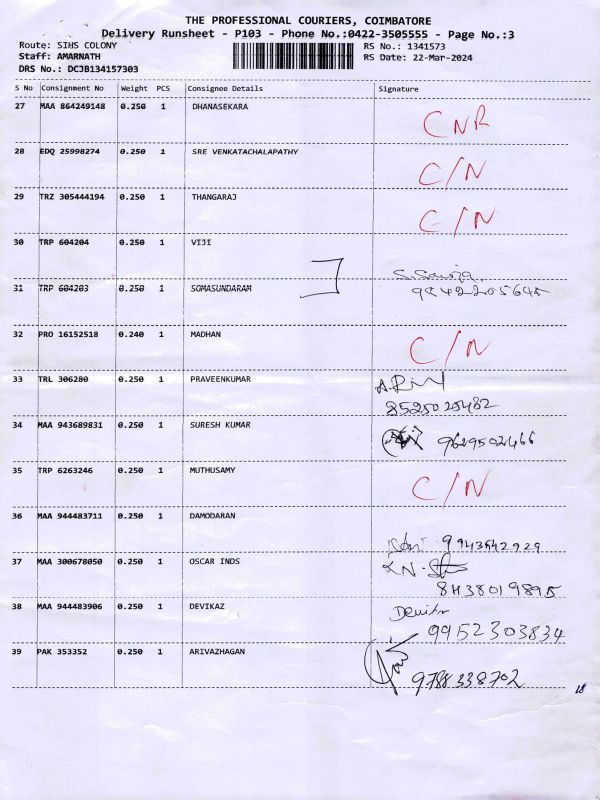 THE PROFESSIONAL COURIERS, COIMBATORE
Delivery Runsheet - P103 - Phone No.:0422-3505555 - Page No.:3
Route: SIHS COLONY RS No.: 1341573
Staff: AMARNATH RS Date: 22-Mar-2024
DRS No.: DCJB134157303
S No Consignment No Weight PCS Consignee Details Signature
27 MAA 864249148 0.250 1 DHANASEKARA CNR
28 EDQ 25998274 0.250 1 SRE VENKATACHALAPATHY C/N
29 TRZ 305444194 0.250 1 THANGARAJ C/N
30 TRP 604204 0.250 1 VIJI
31 TRP 604203 0.250 1 SOMASUNDARAM 99422205645
32 PRO 16152518 0.240 1 MADHAN C/N
33 TRL 306280 0.250 1 PRAVEENKUMAR
8525025482
34 MAA 943689831 0.250 1 SURESH KUMAR 9629502466
35 TRP 6263246 0.250 1 MUTHUSAMY C/N
36 MAA 944483711 0.250 1 DAMODARAN
9943542929
37 MAA 300678050 0.250 1 OSCAR INDS
8438019895
38 MAA 944483906 0.250 1 DEVIKAZ
9952303834
39 PAK 353352 0.250 1 ARIVAZHAGAN
9788338702
18